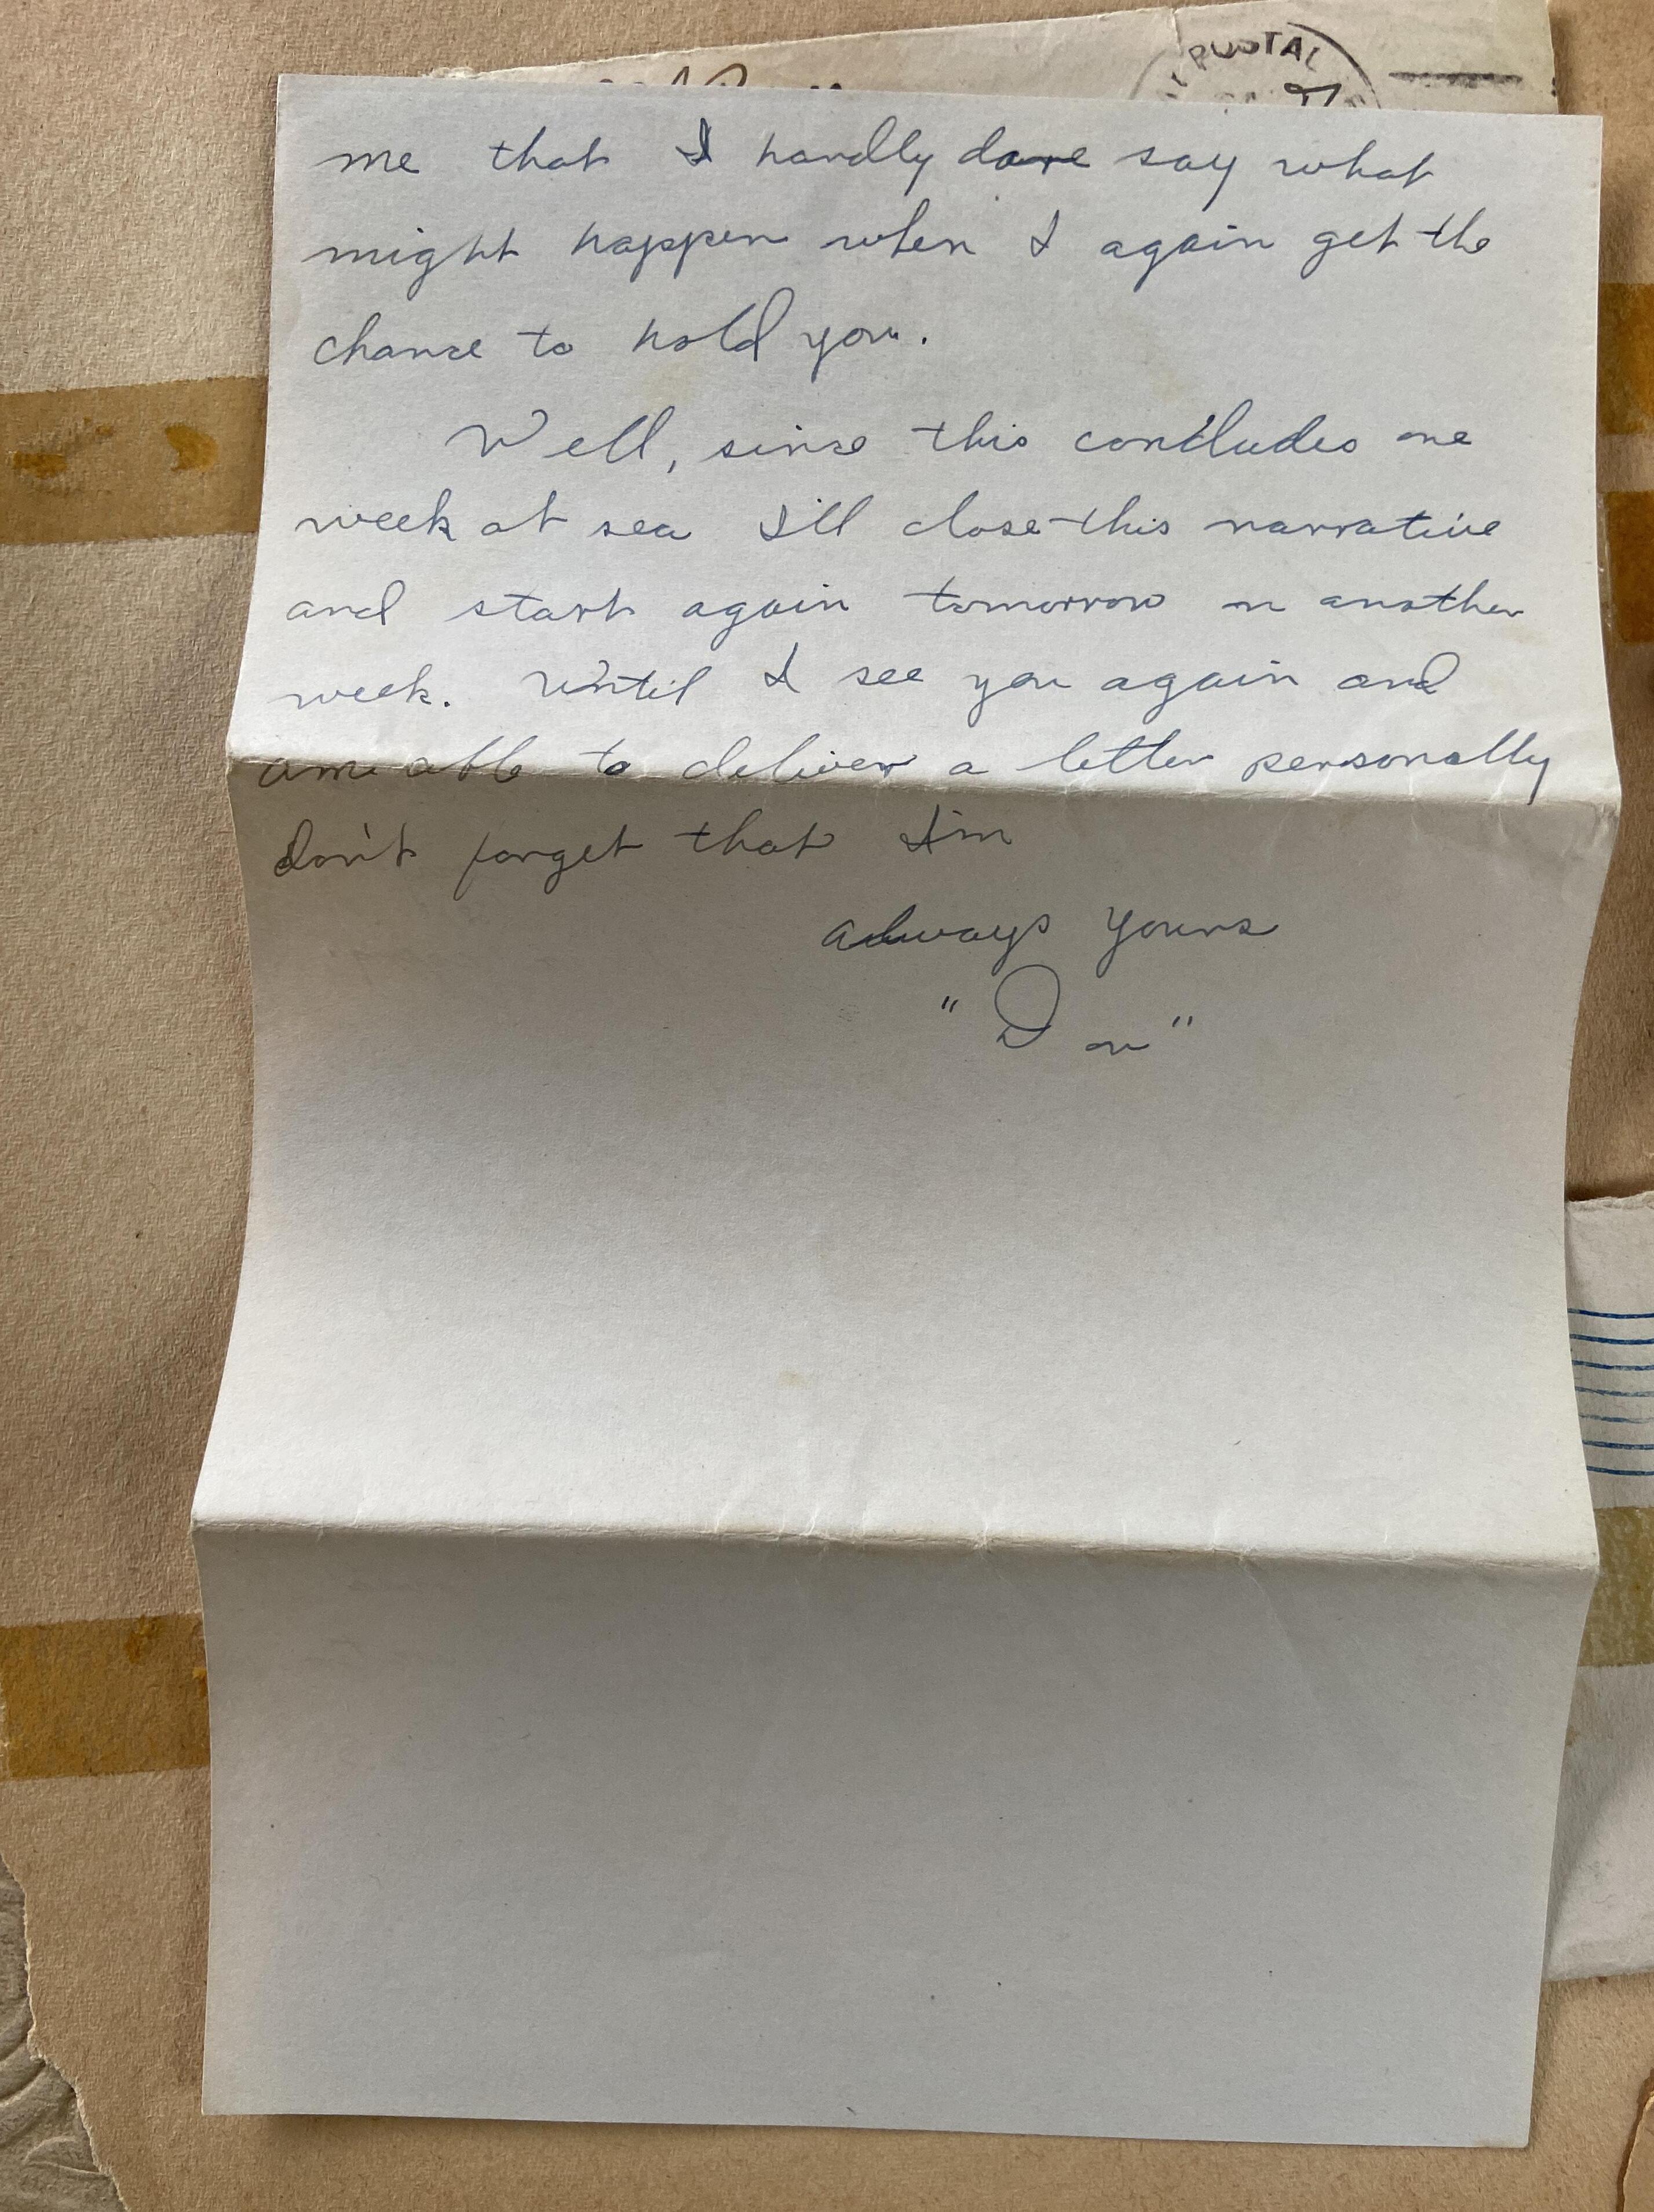 POSTAL
me that I hardly dare say what
might happen when I again get the
chance to hold you.
Well, since this concludes one
week at sea I'll close this narrative
and start again tomorrow on another
week. Until I see you again and
am able to deliver a letter personally
don't forget that I'm
always yours
"Don"